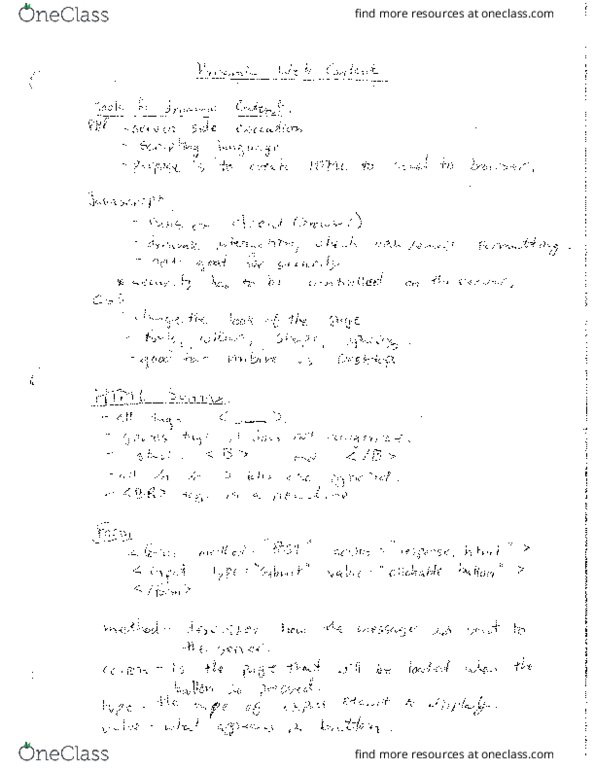 OneClass
find more resources at oneclass.com
Dynamic Web Content
Tools for dynamic Content.
PHP - server side execution
- Scripting language
- purpose is to create HTML to send to browser.
Javascript
- runs on client (browser)
- dynamic interaction, check email formatting.
- not good for security
* security has to be controlled on the server.
CSS
- change the look of the page
- fonts, colours, shape, spacing.
- good for mobile vs Desktop
HTML
- all tags < ___ >.
- ignores tags it does not recognize.
- <B> and </B>
- all are ignored.
- <BR> tag is a newline
Form
<form method="POST" action="response.html">
<input type="submit" value="clickable button">
</form>
method - describes how the message is sent to
the server.
action - is the page that will be loaded when the
button is pressed.
type - the type of input element to display.
value - what appears in button.
OneClass
find more resources at oneclass.com